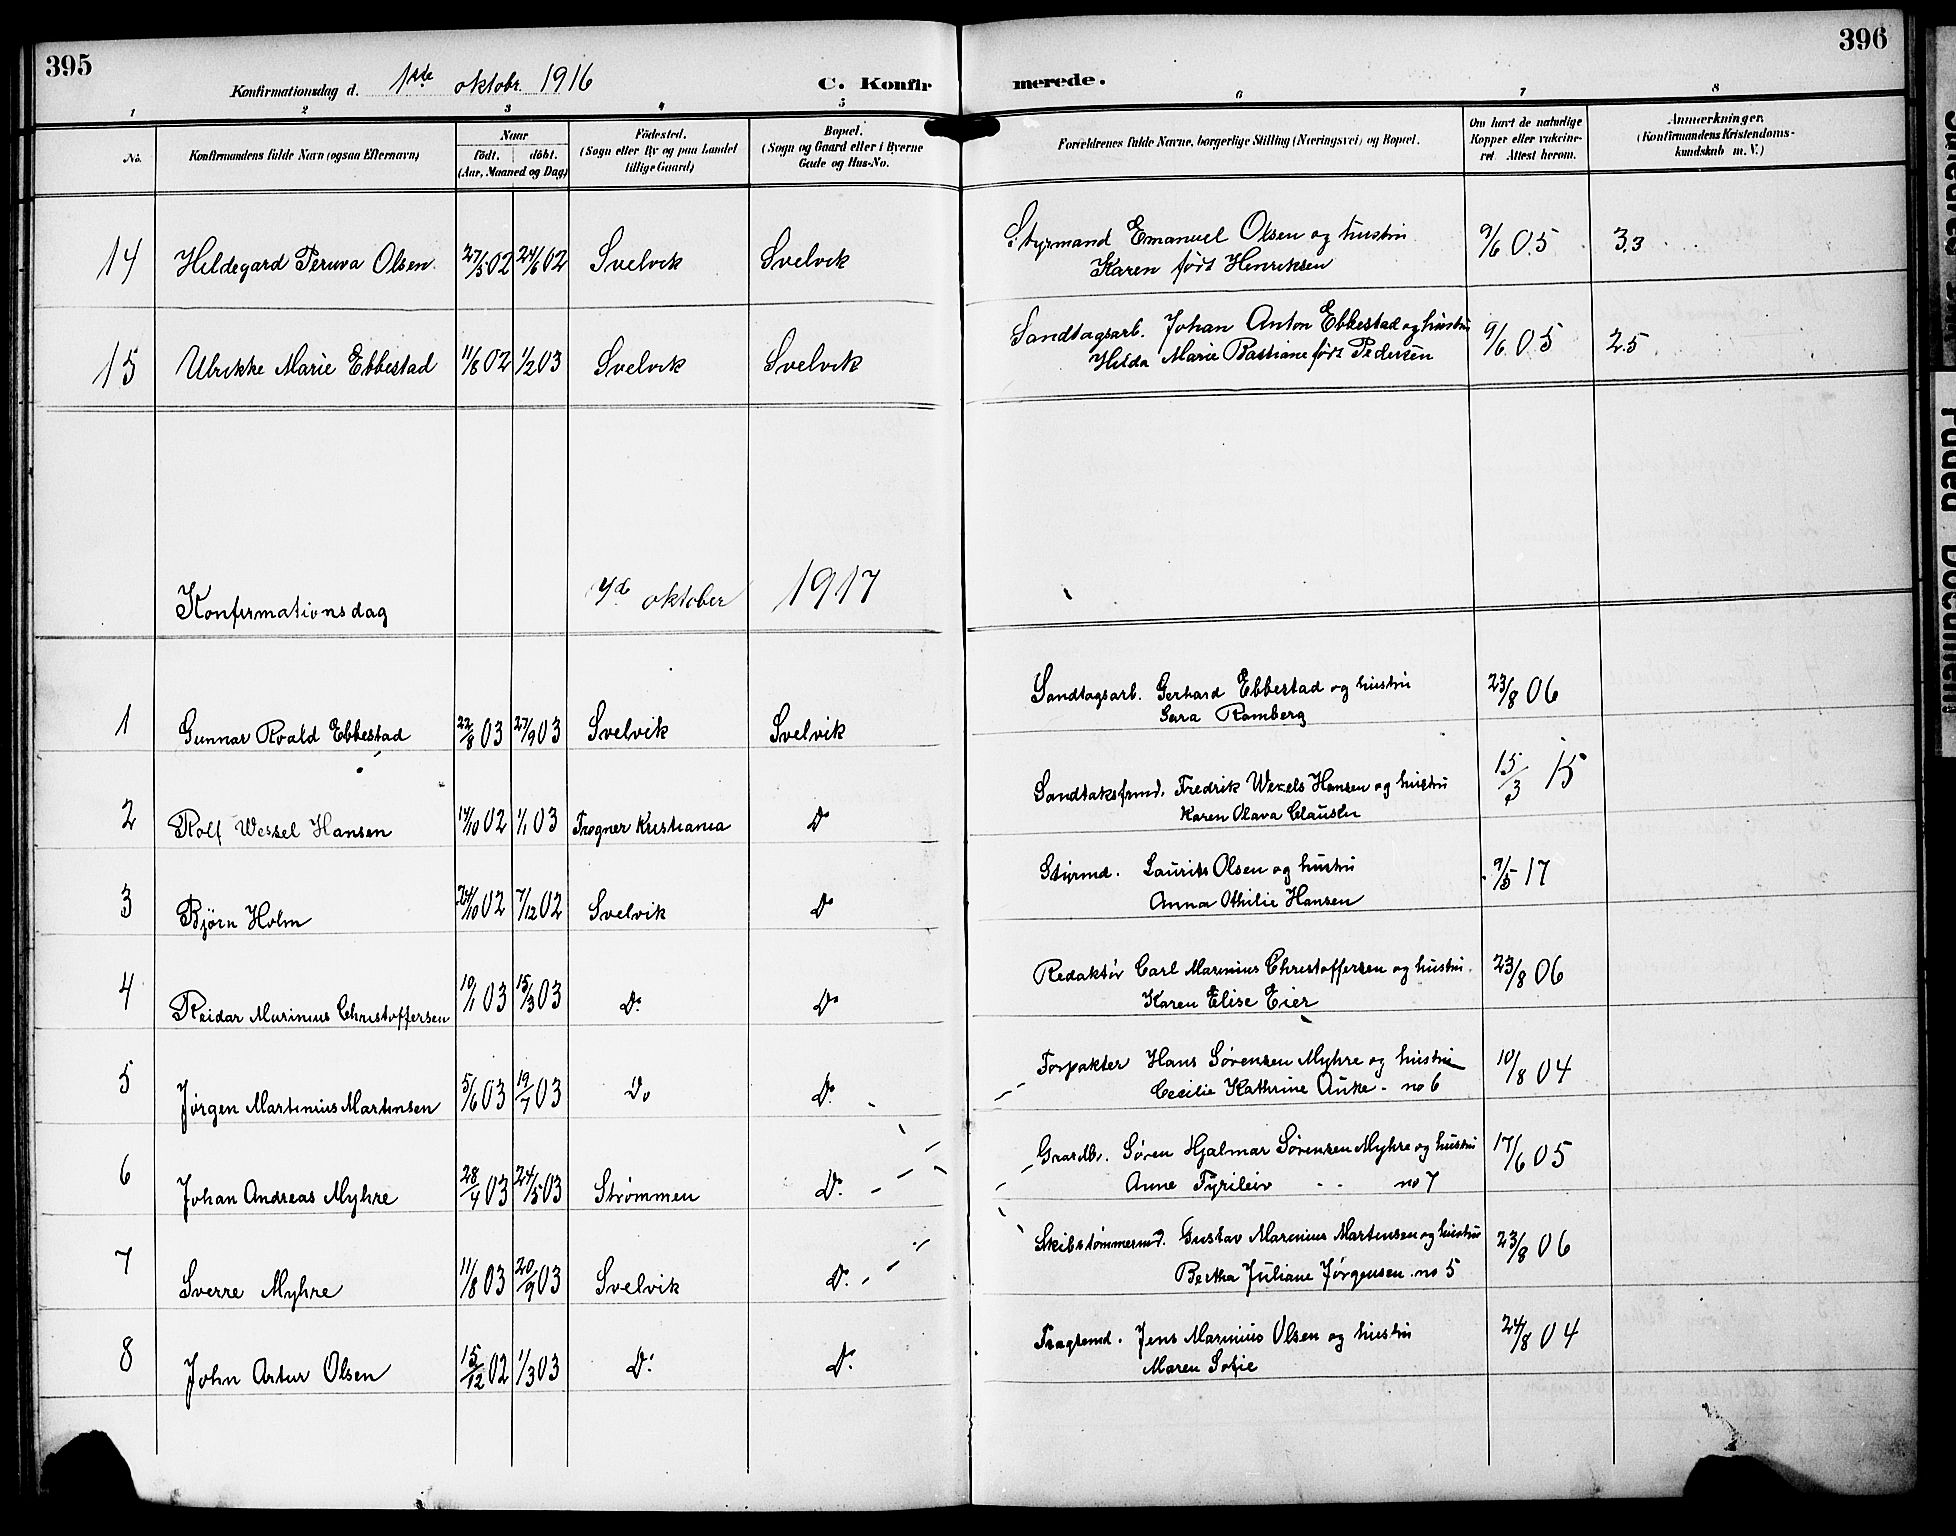 395
396
Konfirmationsdag d. 1ste oktobr. 1916
C. Konfirmerede.
1 2 3 4 5 6 7 8
No.
Konfirmandens fulde Navn (ogsaa Efternavn)
Naar
født. døbt.
(Aar, Maaned og Dag)
Fødested.
(Sogn eller By og paa Landet
tillige Gaard)
Bopæl.
(Sogn og Gaard eller i Byerne
Gade og Hus-No.
Forældrenes fulde Navne, borgerlige Stilling (Næringsvei) og Bopæl.
Om havt de naturlige
Kopper eller vakcine-
ret. Attest herom.
Anmærkninger.
(Konfirmandens Kristendoms-
kundskab m. V.)
14 Hildegard Peruva Olsen 27/5 02 24/6 02 Svelvik Svelvik Styrmand Emanuel Olsen og hustru 9/6 05 33
Karen født Henriksen
15 Ulrikke Marie Ebbestad 11/8 02 1/2 03 Svelvik Svelvik Sandtagsarb. Johan Anton Ebbestad og hustru 9/6 05 25
Hilda Marie Bastiane født Pedersen
Konfirmationsdag oktober 1917
1 Gunnar Roald Ebbestad 22/8 03 27/9 03 Svelvik Svelvik Sandtagsarb. Gerhard Ebbestad og hustru 23/8 06
Sara Ramberg
2 Rolf Wessel Hansen 14/10 02 1/1 03 Frogner Kristiania Do Sandtaksfrmd. Fredrik Wexels Hansen og hustru 15/3 15
Karen Olava Clausen
3 Bjørn Holm 24/10 02 7/12 02 Svelvik Do Styrmd. Laurits Olsen og hustru 9/5 17
Anna Othilie Hansen
4 Reidar Marinius Christoffersen 10/1 03 15/3 03 Do Do Redaktør Carl Marinius Christoffersen og hustru 23/8 06
Karen Elise Eier
5 Jørgen Martinius Martinsen 5/6 03 19/7 03 Do Do Forpakter Hans Sørensen Myhre og hustru 10/8 04
Cecilie Kathrine Anke - no 6
6 Johan Andreas Myhre 28/4 03 24/5 03 Strømmen Do Gaardbr. Søren Hjalmar Sørensen Myhre og hustru 17/6 05
Anne Fyrileiv - - no 7
7 Sverre Myhre 11/8 03 20/9 03 Svelvik Do Skibstømmermd. Gustav Marinius Martinsen og hustru 23/8 06
Bertha Juliane Jørgensen. no 5
8 John Artur Olsen 15/12 02 1/3 03 Do Do Fragtemd. Jens Marinius Olsen og hustru 24/8 04
Maren Sofie
Faded Document